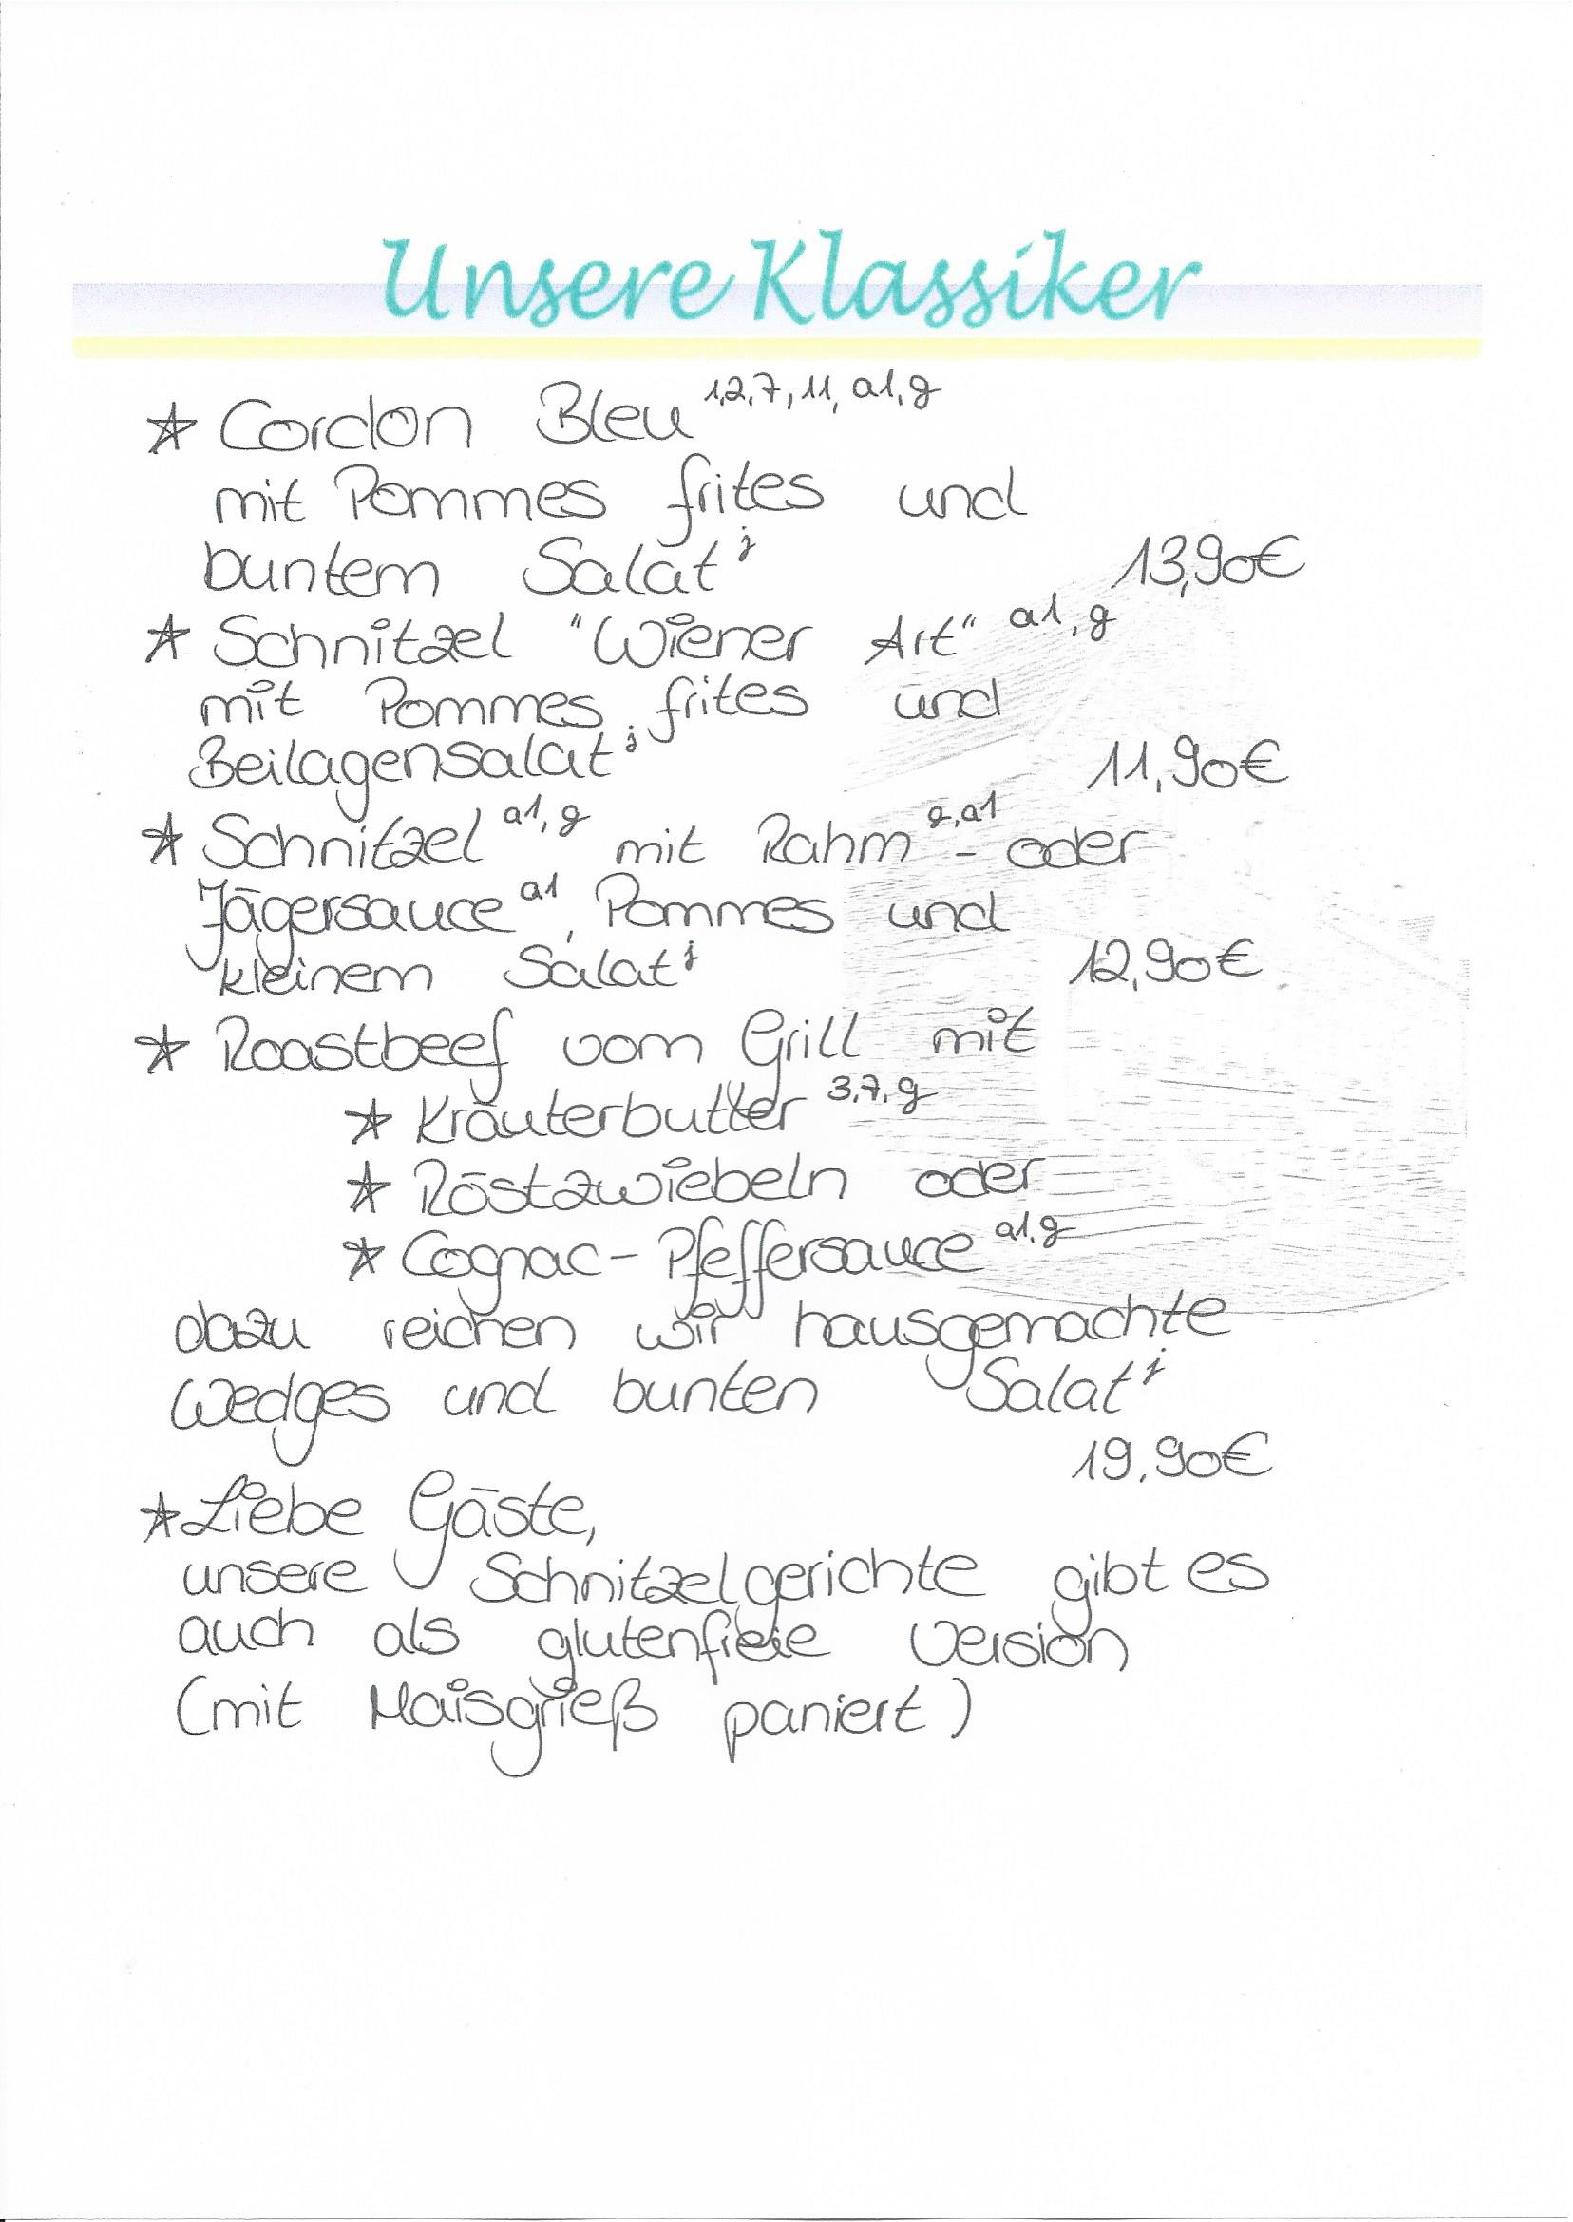 Unsere Klassiker
☆ Cordon Bleu 1,2,7,11,a1,g
mit Pommes frites und
buntem Salat j 13,90€
☆ Schnitzel "Wiener Art" a1,g
mit Pommes frites und
Beilagensalat j 11,90€
☆ Schnitzel a1,g mit Rahm g,a1 - oder
Jägersauce a1, Pommes und
kleinem Salat j 12,90€
☆ Roastbeef vom Grill mit
☆ Kräuterbutter 3,7,g
☆ Röstzwiebeln oder
☆ Cognac-Pfeffersauce a1,g
dazu reichen wir hausgemachte
Wedges und bunten Salat j
19,90€
☆ Liebe Gäste,
unsere Schnitzelgerichte gibt es
auch als glutenfreie Version
(mit Maisgrieß paniert)